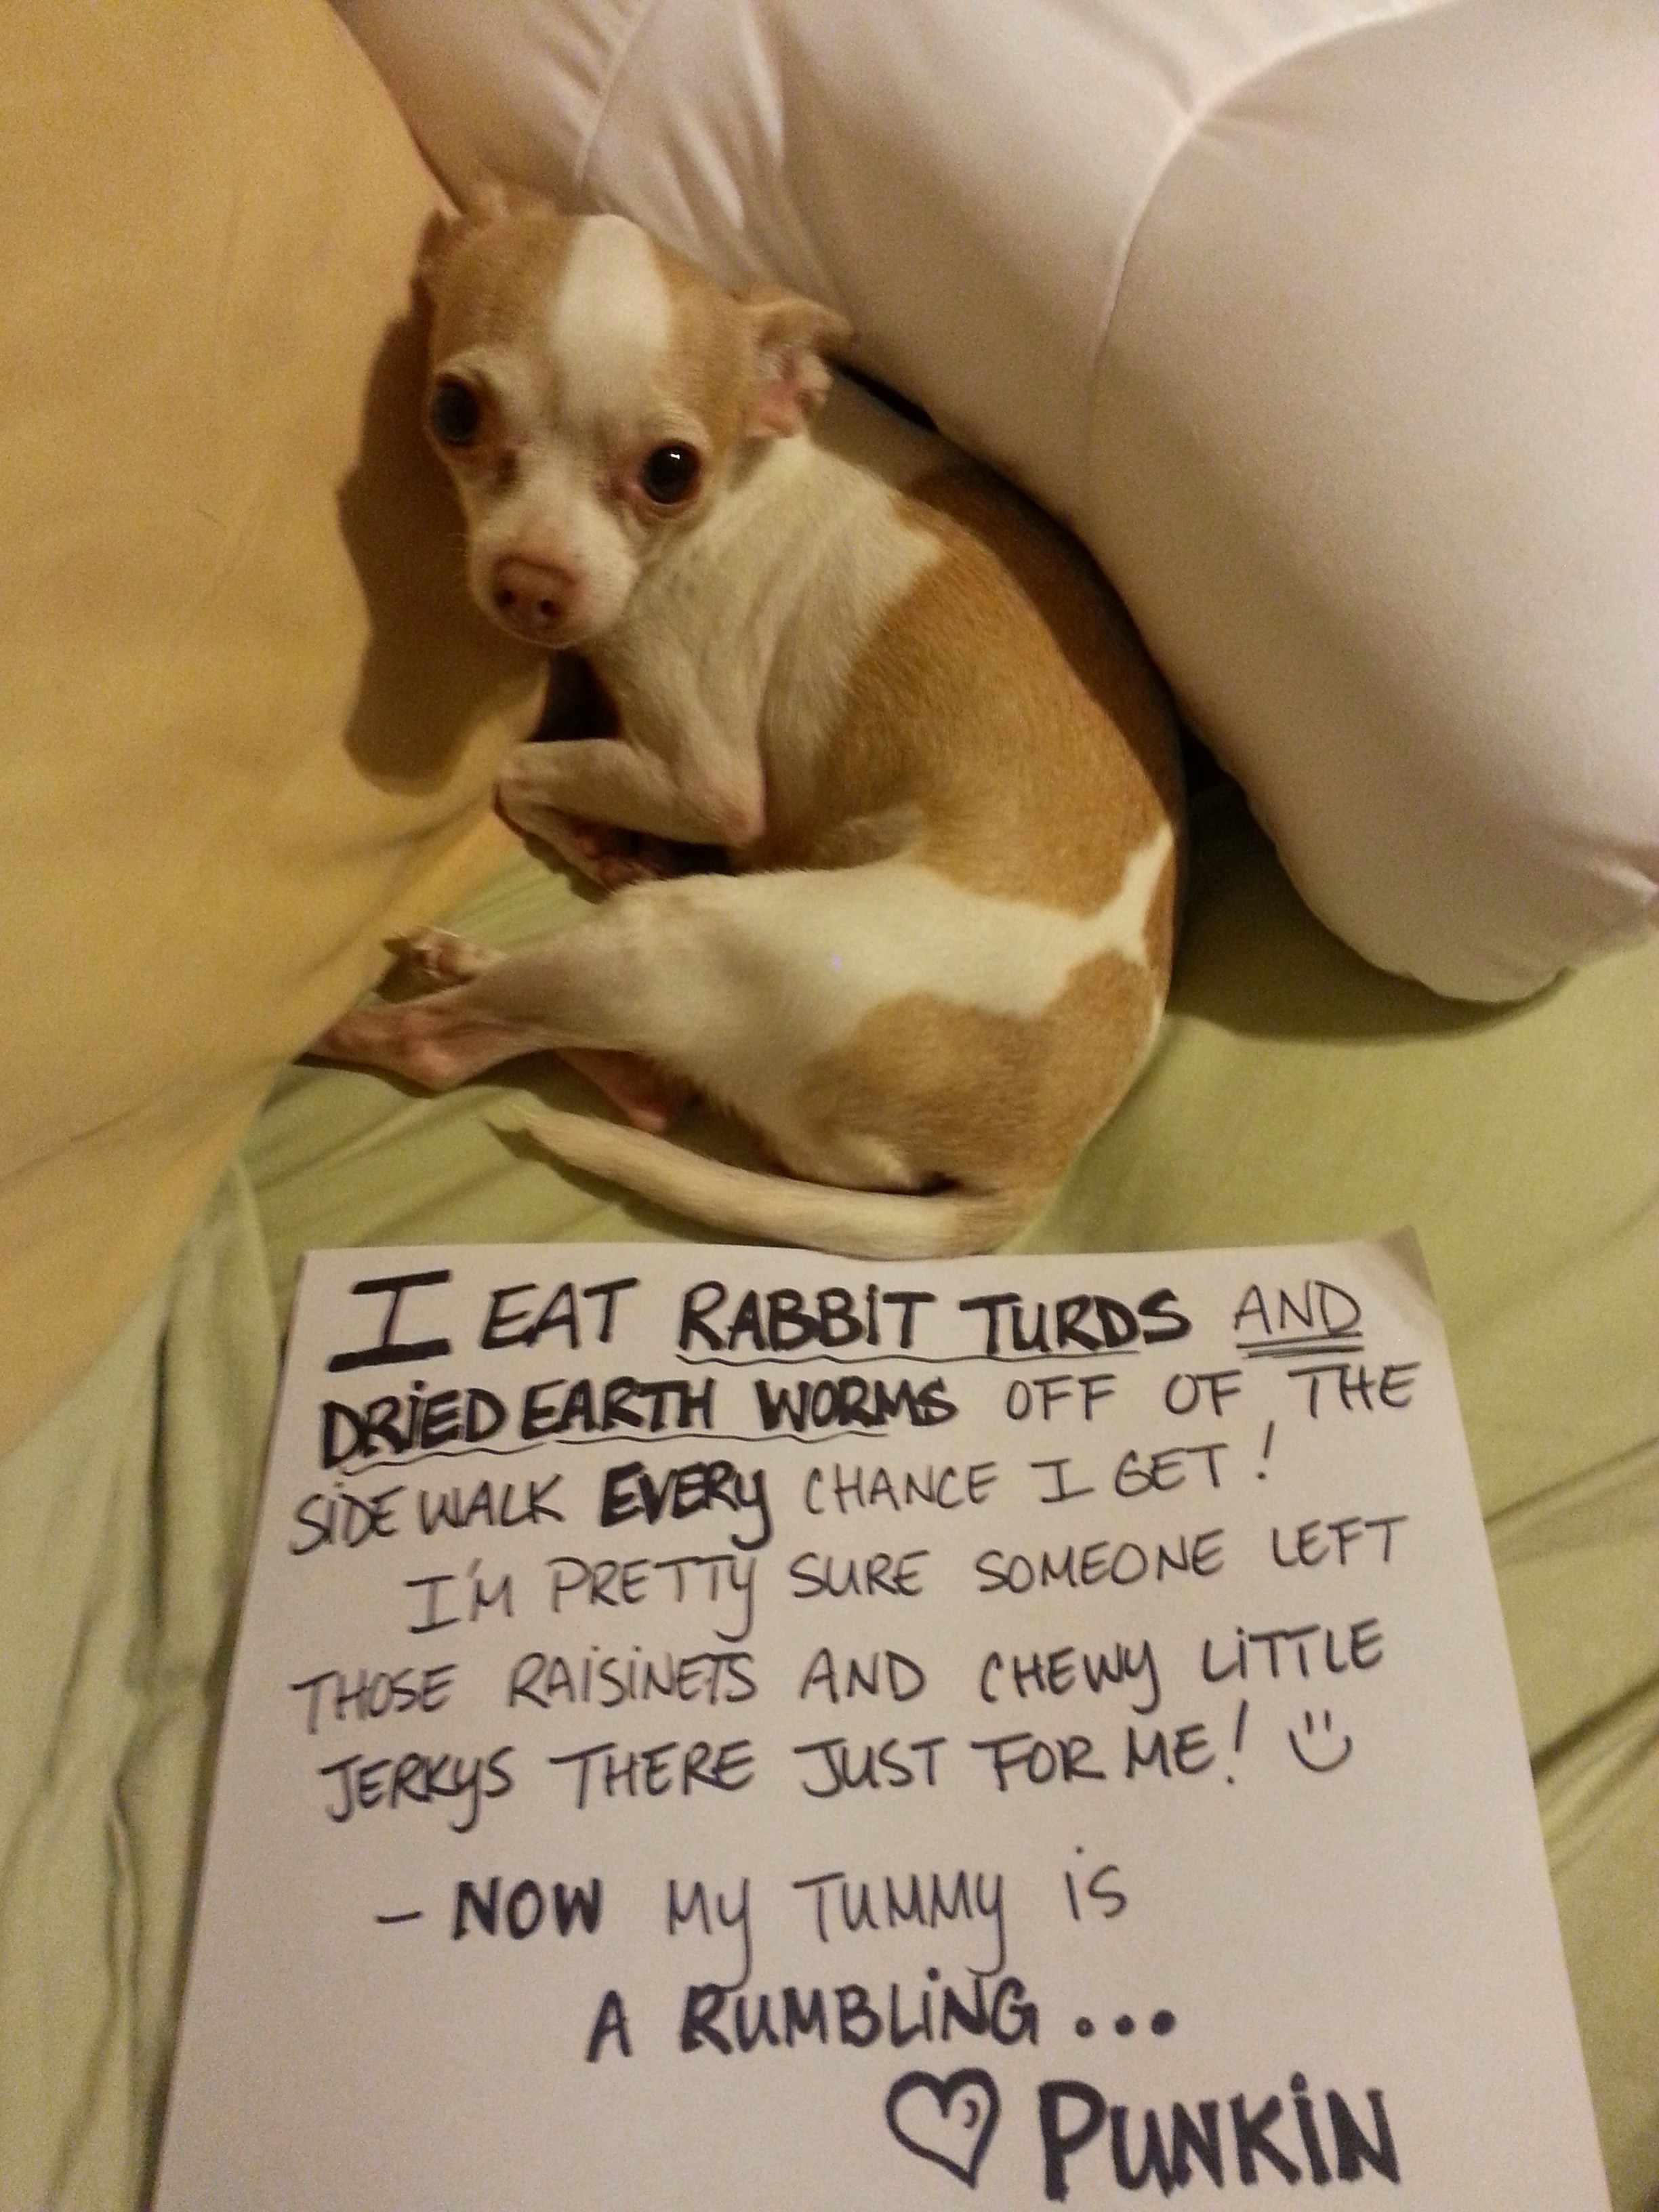 I EAT RABBIT TURDS AND
DRIED EARTH WORMS OFF OF THE
SIDEWALK EVERY CHANCE I GET!
I'M PRETTY SURE SOMEONE LEFT
THOSE RAISINETS AND CHEWY LITTLE
JERKYS THERE JUST FOR ME! :)
- NOW MY TUMMY IS
A RUMBLING...
♡ PUNKIN